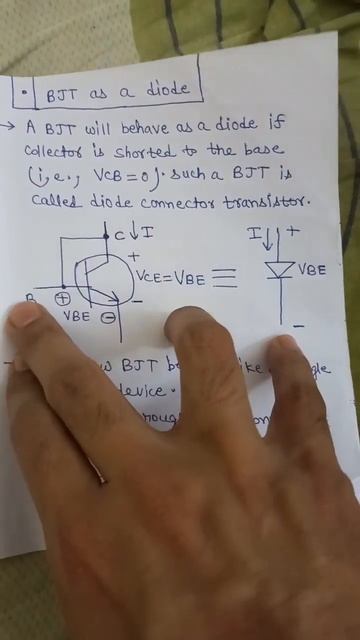 • BJT as a diode
→ A BJT will behave as a diode if
collector is shorted to the base
(i,e., VCB=0). Such a BJT is
called diode connector transistor.
C ↓ I
+
VCE = VBE ≡
−
B
+
VBE −
I ↓ +
VBE
−
BJT like
device.